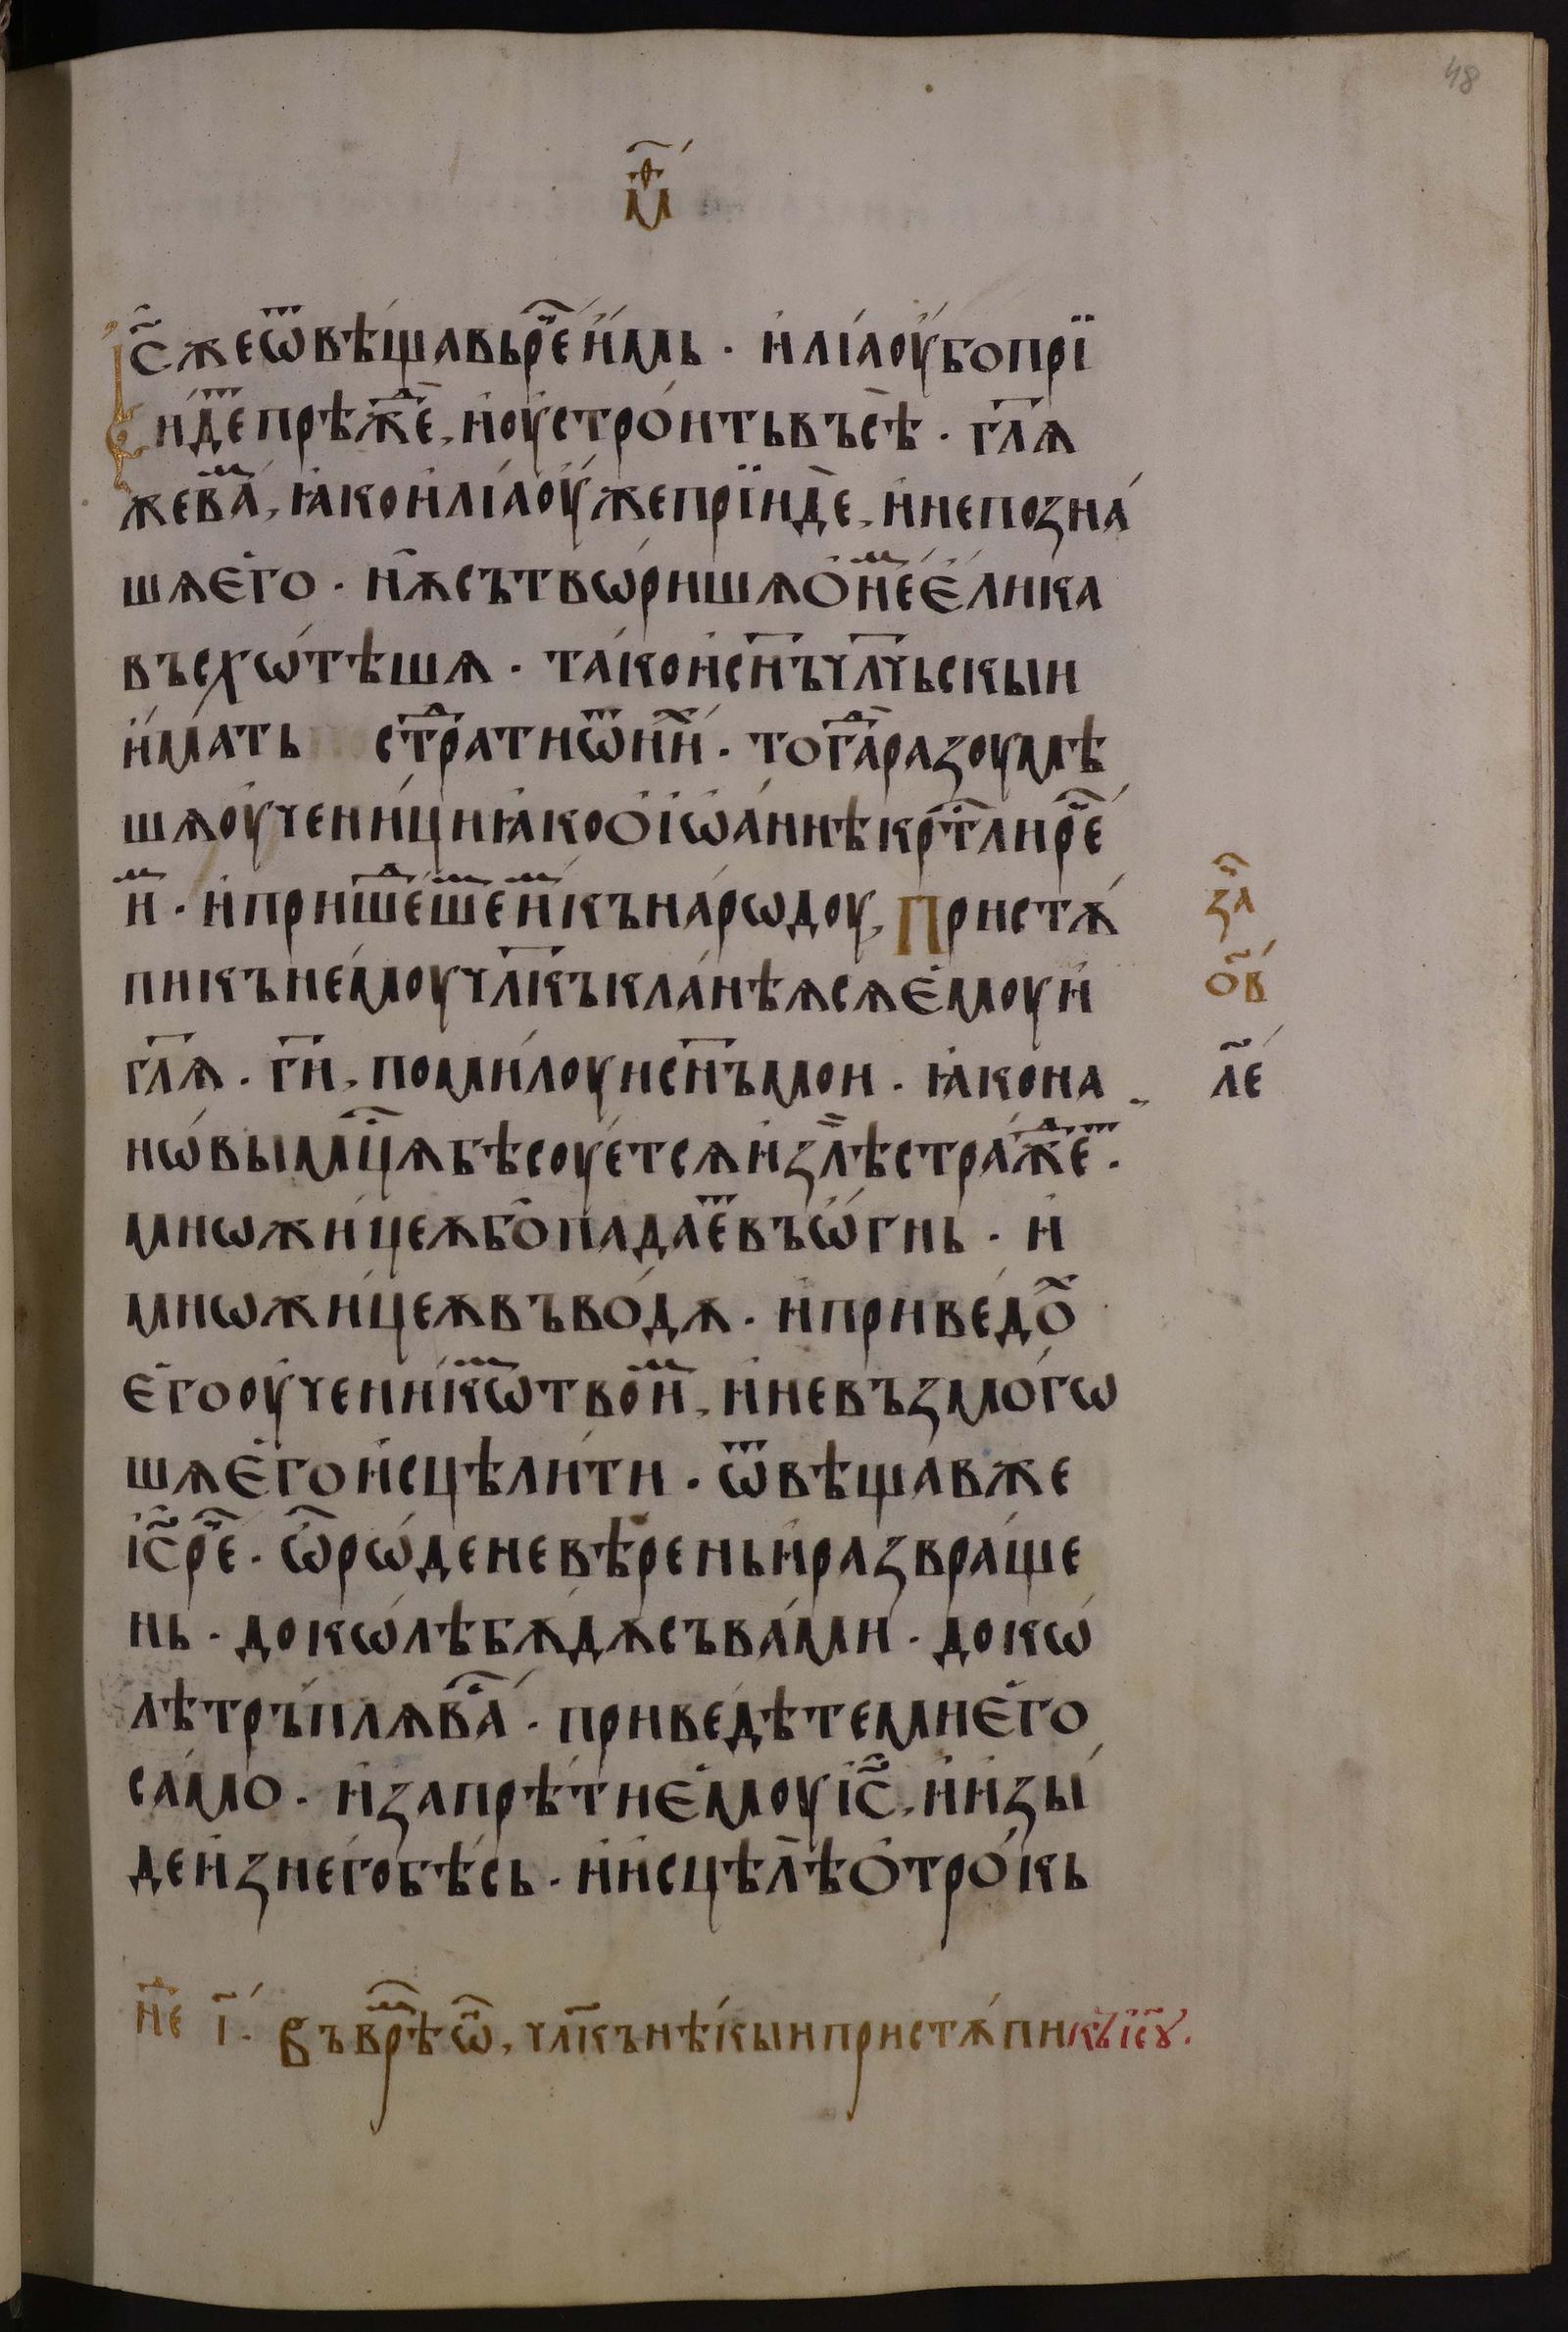 м҃т
І҆с҃жеѿвѣщавьре҃и҆мь · и҆лїаоу҆бопрї
иде҃прѣж҃е, и҆оу҆строитьвъсѣ · гл҃ѧ
жева҃, ꙗ҆кои҆лїаоу҆жепрїиде, и҆непозна
шѧе҆го · нѫсътвѡришѧѻ҆не҃е҆лика
въсхѡтѣшѧ · такои҆сн҃ъчл҃чьскыи
и҆мать стр҃атиѿни҃ · тог҃аразоумѣ
шѧоу҆ченициꙗ҆коѻ҆і҆ѡ҆аннѣкрт҃лире҃
и҃ · и҆приш҃еше҃и҃къ народоу, Пристѫ
пикънемоучл҃къкланѣѧсѧе҆моуи҆
гл҃ѧ · ги҃, помилоуисн҃ъмои · ꙗ҆кона
нѡвымц҃ѧбѣсоуетсѧи҆злѣстраж҃е ·
мнѡжицеѫбопадае҃въѡ҆гнь · и҆
мнѡжицеѫвъводѫ · и҆приведо҃
е҆гооу҆чениκѡ҃твои҃, и҆невъзмогѡ
шѧе҆гои҆сцѣлити · ѿвѣщавже
і҆с҃ре҃ · ѡ҆рѡденевѣреньи҆развраще
нь · докѡлѣбѫдѫсъвами · докѡ
лѣтръплѧва҃ · приведѣтемие҆го
само · и҆запрѣтие҆моуі҆с҃, и҆и҆зы
деи҆знегобѣсь · и҆и҆сцѣлѣѻ҆трокь
за҃
о҃в
л҃е
н҃е і҃ · въвр҃ѣѡ҃, чл҃кънѣкыипристѫпикъі҆с҃ꙋ ·
48